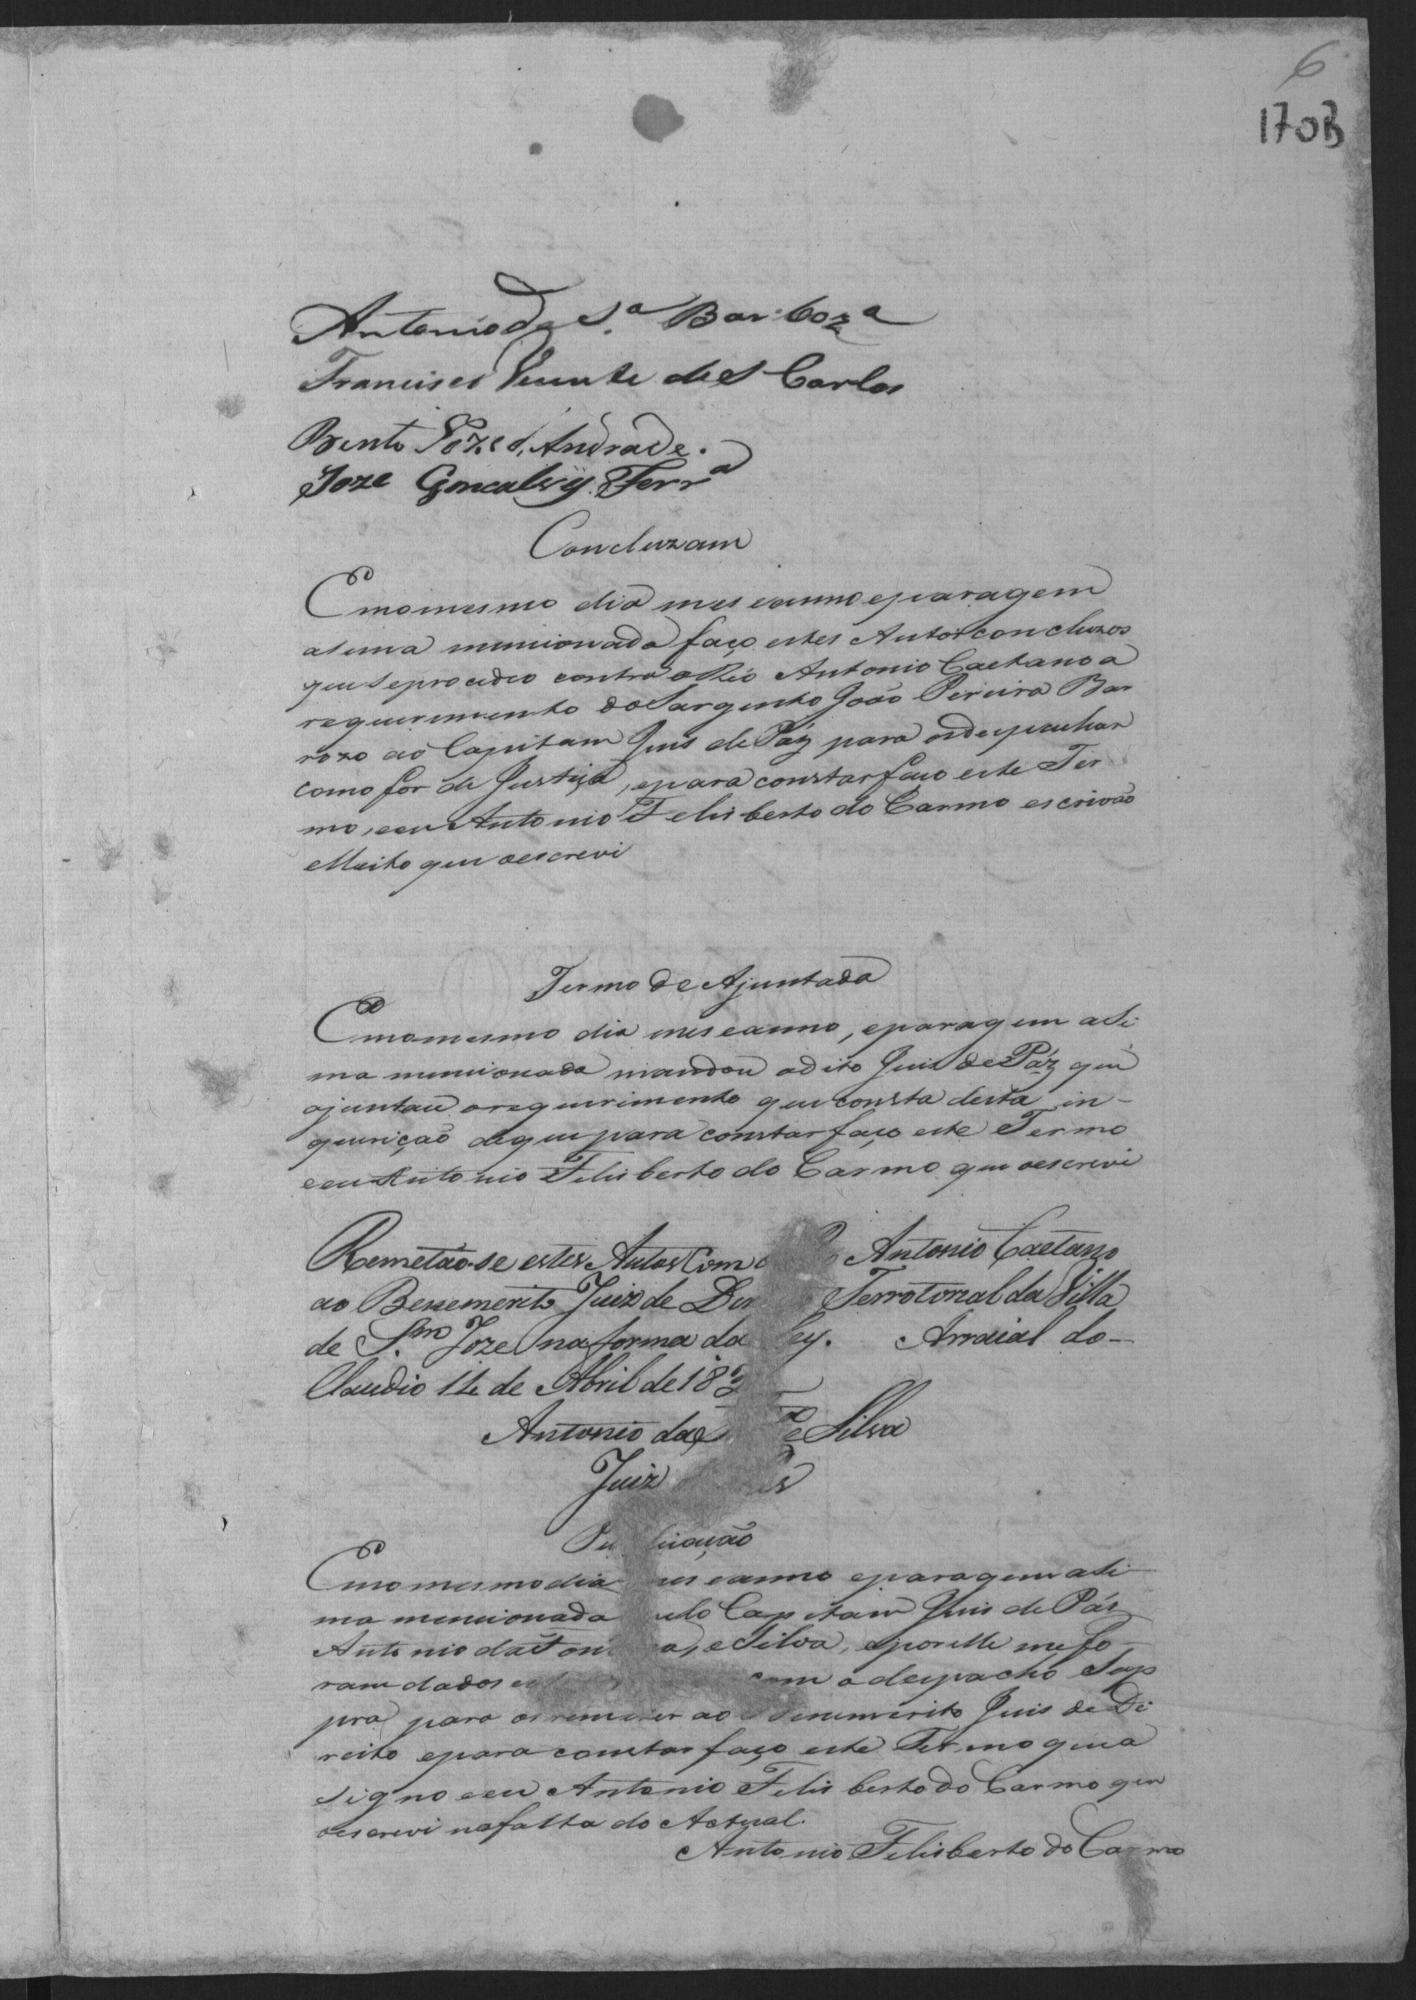 6
170B
Antonio de S.ª Barboza
Francisco Vicente de S Carlos
Bento Joze d'Andrade.
Joze Goncalvȳ Ferrª
Concluzam
E no mesmo dia mes eanno eparagem
asima mencionada faço estes Autos concluzos
que Seprocedeo contra o Réo Antonio Caetano a
requerimento do Sargento João Pereira Bar
rozo ao Capitam Juis de Páz para odespachar
como for de Justiça, epara constar faço este Ter
mo, eeu Antonio Felisberto do Carmo escrivão
que oescrevi
Termo de Ajuntada
E no mesmo dia mes eanno, eparagem asi
ma mencionada mandou o dito Juis de Páz que
ajuntace orequerimento que consta desta in-
quirição deque para constar faço este Termo
eeu Antonio Felisberto do Carmo que oescrevi
Remetão-se estes Autos Com Antonio Caetano
ao Benemerito Juiz de Territorial da Villa
de S.m Joze na forma da Ley. Arraial do-
Claudio 14 de Abril de 183
Antonio da e Silva
Juiz
Publicação
E no mesmo dia mes eanno eparagem asi
ma mencionada pelo Capitam Juis de Páz
Antonio da e Silva, eporelle me fo
ram dados com o despacho Sup
pra para os remeter ao Benemerito Juis de Di
reito epara constar faço este Termo que a
signo eeu Antonio Felisberto do Carmo que
oescrevi nafalta do Actual.
Antonio Felisberto do Carmo